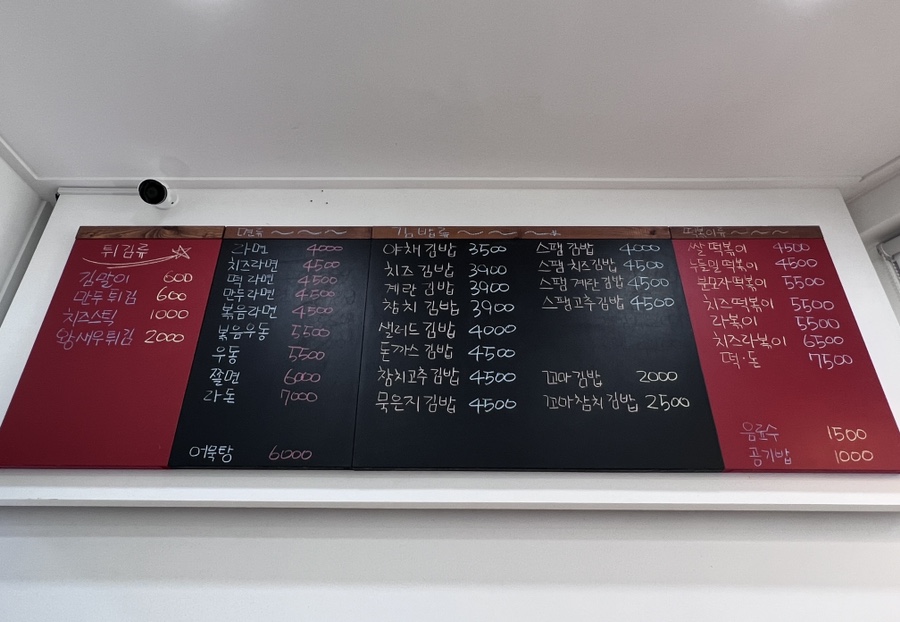 튀김류
김말이 600
만두튀김 600
치즈스틱 1000
왕새우튀김 2000
면류
라면 4000
치즈라면 4500
떡라면 4500
만두라면 4500
볶음라면 4500
볶음우동 5500
우동 5500
쫄면 6000
라돈 7000
어묵탕 6000
김밥류
야채김밥 3500
치즈김밥 3900
계란김밥 3900
참치김밥 3900
샐러드김밥 4000
돈까스김밥 4500
참치고추김밥 4500
묵은지김밥 4500
스팸김밥 4000
스팸치즈김밥 4500
스팸계란김밥 4500
스팸고추김밥 4500
꼬마김밥 2000
꼬마참치김밥 2500
떡볶이류
쌀떡볶이 4500
누들밀떡볶이 4500
분모자떡볶이 5500
치즈떡볶이 5500
라볶이 5500
치즈라볶이 6500
떡·돈 7500
음료수 1500
공기밥 1000